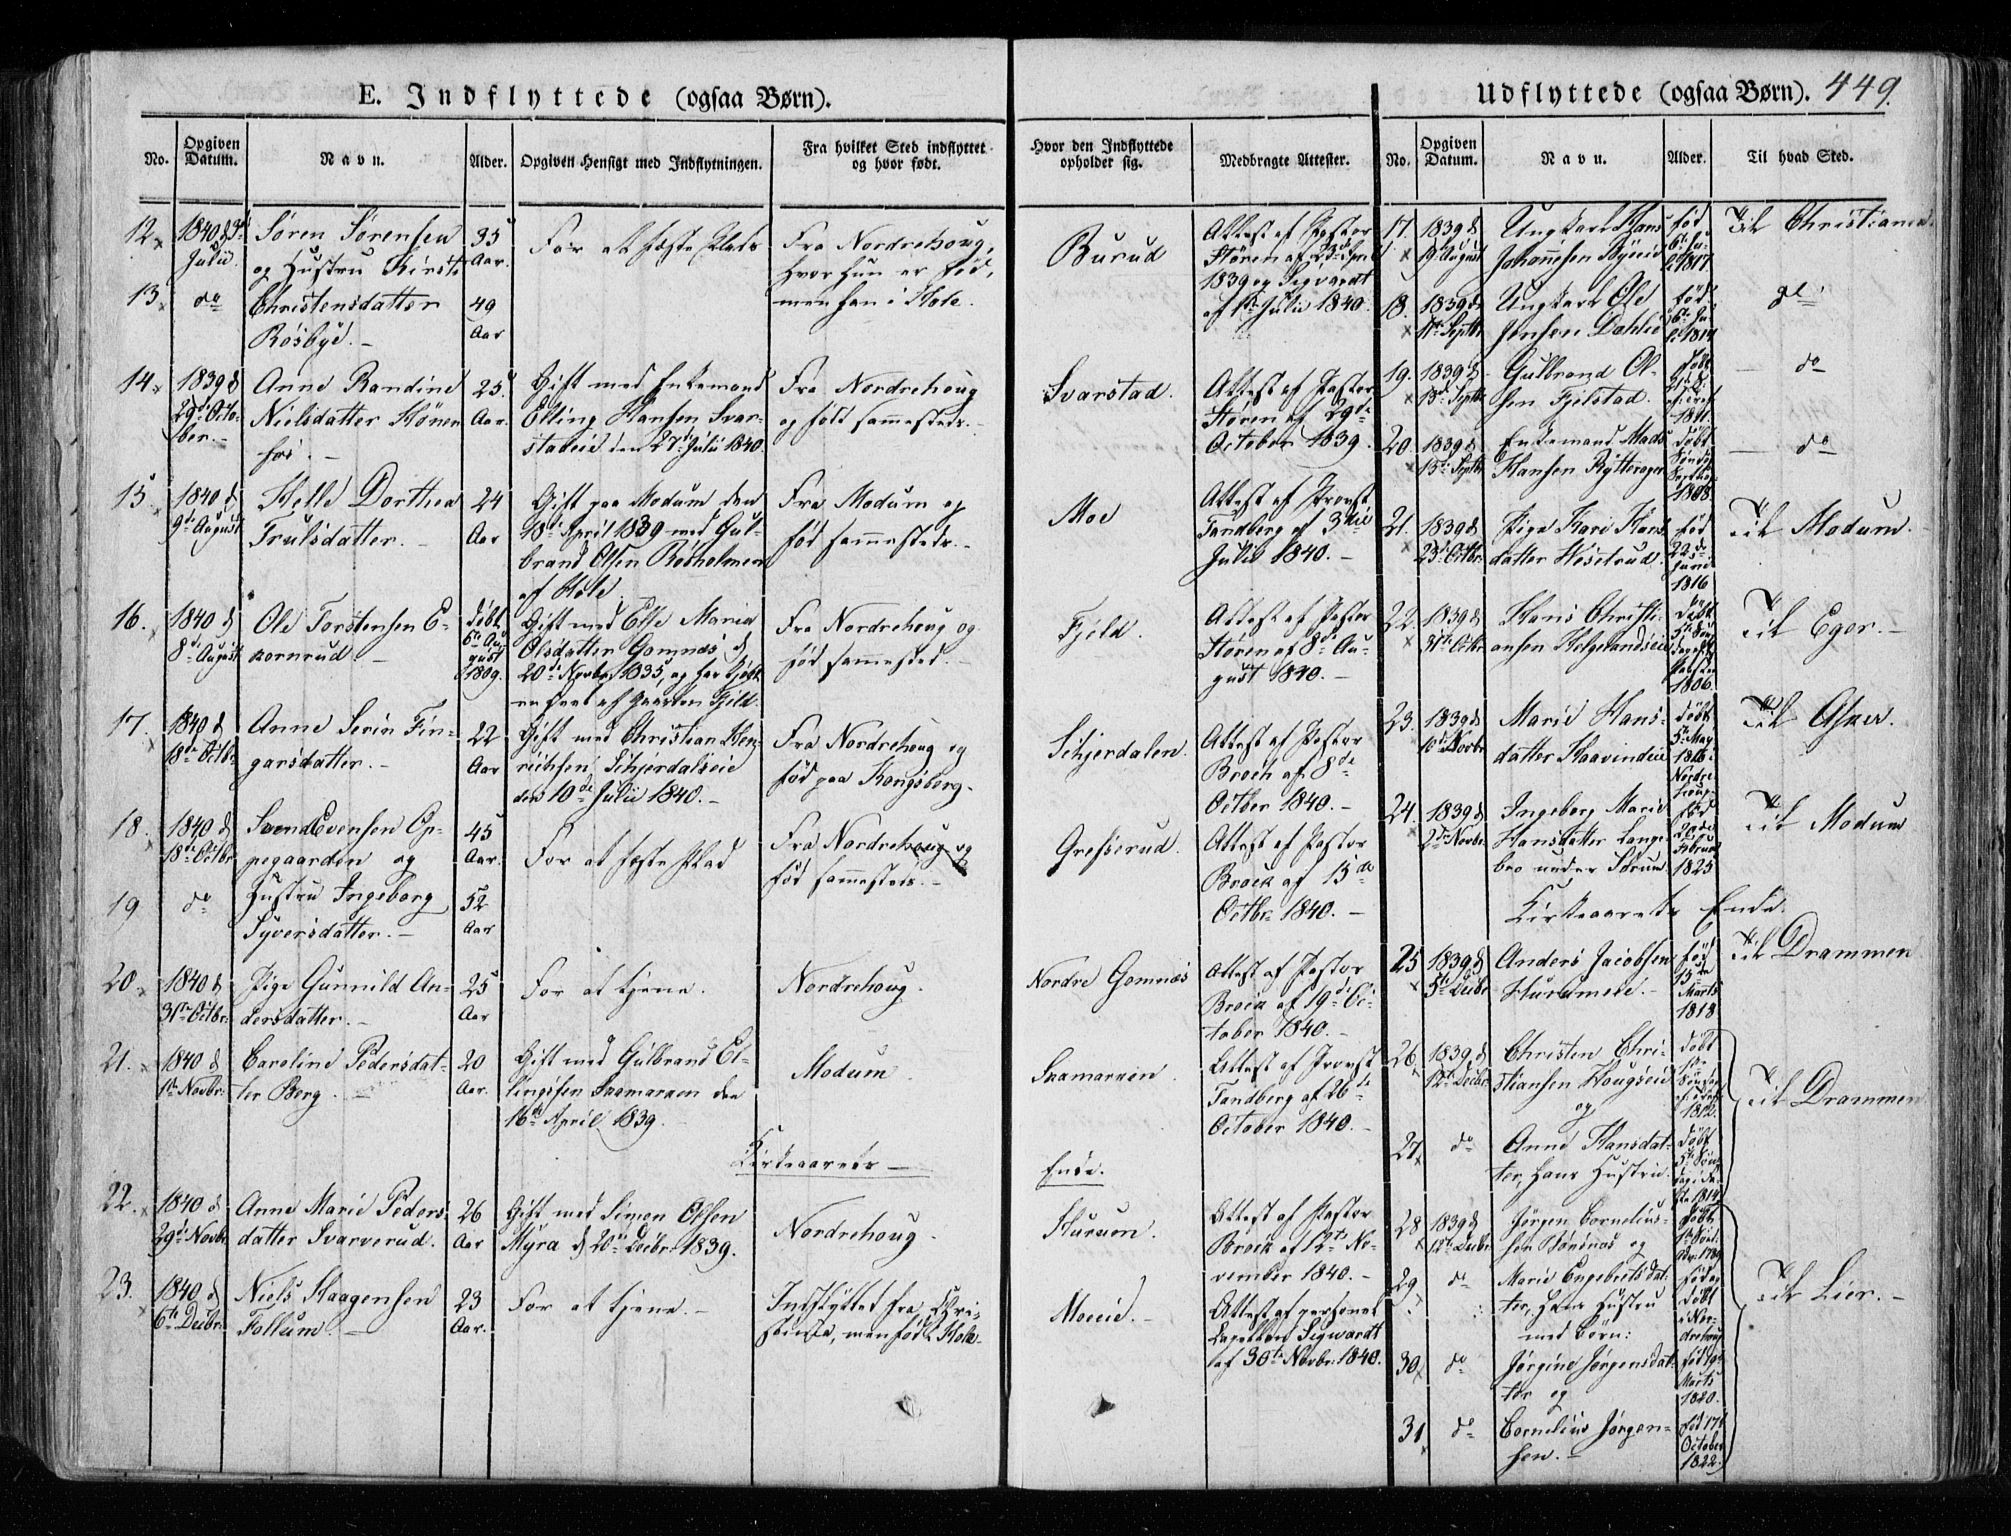 E. Indflyttede (ogsaa Børn).
No.
Opgiven Datum.
Navn.
Alder.
Opgiven Hensigt med Indflytningen.
Fra hvilket Sted indflyttet og hvor født.
Hvor den Indflyttede opholder sig.
Medbragte Attester.
12
1840 d
Julii.
Søren Sørensen
og Hustru
35
Aar.
For at fæste Plads
Fra Nordrehoug,
hvor hun er fød,
men han i Hole.
Burud
Attest af Pastor
Støren af
1839 og Sigvardt
af Julii 1840.
13
do
Christensdatter
Røsbye.
49
Aar
14
1839 d
29de Octo-
ber.
Anne Randine
Nielsdatter
25
Aar.
Gift med Enkemand
Elling Hansen Svar-
stadeie den 27de Julii 1840
Fra Nordrehoug
og født sammesteds.
Svarstad.
Attest af Pastor
Støren af 29de
October 1839.
15
1840 d
9de August
Helle Dorthea
Trulsdatter.
24
Aar
Gift paa Modum den
18de April 1839 med Gul-
brand Olsen
af Hole.
Fra Modum og
fød sammesteds.
Moe
Attest af Provst
Tandberg af 3die
Julii 1840.
16.
1840 d
8de August
Ole Torstensen E-
kornrud.
døbt
6te Au-
gust
1809.
Gift med Else Maria
Olsdatter Gomnæs d
20de Novbr. 1835, og har kjøbt
en Part af Gaarden Fjeld.
Fra Nordrehoug og
fød sammested.
Fjeld.
Attest af Pastor
Støren af 8de Au-
gust 1840.
17.
1840 d
18de Octbr.
Anne Serin Fin-
garsdatter.
22
Aar
Gift med Christian Hen-
richsen Schjerdalseie
den 10de Julii 1840.
Fra Nordrehoug og
fød paa Kongsberg.
Schjerdalen.
Attest af Pastor
Broch af 8de
Octber 1840.
18.
1840 d
18de Octbr.
Svend Evensen Op-
pegaarden og
45
Aar.
For at fæste Plad
Fra Nordrehoug og
fød sammesteds.
Gresserud.
Attest af Pastor
Broch af 15de
Octbr. 1840.
19
do
Hustru Ingeborg
Syversdatter.
52
Aar
20
1840 d
31te Octbr.
Pige Gunnild An-
dersdatter.
25
Aar
For at tjene.
Nordrehoug.
Nordre Gomnæs
Attest af Pastor
Broch af 19de Oc-
tober 1840.
21.
1840 d
1te Novbr.
Caroline Pedersdat-
ter Berg.
20
Aar.
Gift med Gulbrand El-
lingsen Saamarken den
16de April 1839.
Modum
Saamarken
Attest af Provst
Tandberg af 26de
October 1840.
Kirkeaarets
Ende.
22.
1840 d
29de Novbr.
Anne Marie Peders-
datter Svarverud.
26
Aar
Gift med Simon Olsen
Myra d 20de Decbr. 1839.
Nordrehoug.
Sturuen.
Attest af Pastor
Broch af 12te No-
vember 1840.
23.
1840 d
6te Decbr.
Niels Haagensen
Follum.
23
Aar.
For at tjene.
Indflyttet fra Chri-
stiania, men født i Hole.
Moeie.
Attest af personel
Capellan Sigwardt
af 30te Novbr. 1840.
Udflyttede (ogsaa Børn). 449.
No.
Opgiven Datum.
Navn.
Alder.
Til hvad Sted.
17.
1839 d
9de August
Ungkarl Hans
Johannesen
fød
1817.
Til Christiania
18.
1839 d
11te Septbr.
Ungkarl Ole
Jensen Dahlie
fød
1814
19.
1839 d
15de Septbr.
Gulbrand Ol-
sen Fjelstad.
1811.
do
20.
1839 d
15de Septbr.
Enkemand Mads
Hansen Rytterager
døbt
1808.
do
21.
1839 d
23de Octbr.
Pige Kari Hans-
datter
fød
22de
Juni
1816
Til Modum.
22
1839 d
31te Octbr.
Hans Christi-
ansen Helgelandseie
døbt
1806.
Til Eger.
23.
1839 d
10de Novbr.
Marie Hans-
datter
døbt
5te May
Nordre-
houg
Til Asker.
24.
1839 d
2den Novbr.
Ingeborg Marie
Hansdatter Lange-
bro under Sørum.
fød
Februar
1825
Til Modum
Kirkeaarets Ende.
25
1839 d
5te Decbr.
Anders Jacobsen
fød
15de
Marts
1818
Til Drammen
26.
1839 d
12te Decbr.
Christen Chri-
stiansen Hougseie
og
døbt
1812.
Til Drammen
27.
do
Anne Hansdat-
ter, hans Hustru.
døbt
1814
28
1839 d
12te Decbr.
Jørgen Cornelius-
sen Bønsnæs og
døbt
1789
29.
do
Marie Engebretsdat-
ter, hans Hustru
med Børn:
fød og
døbt
i Nor-
drehoug
Til Lier.
30.
do
Jørgine Jørgensdat-
ter og
Marts
1820.
31
do
Cornelius Jørgen-
sen.
fød 17de
October
1822.